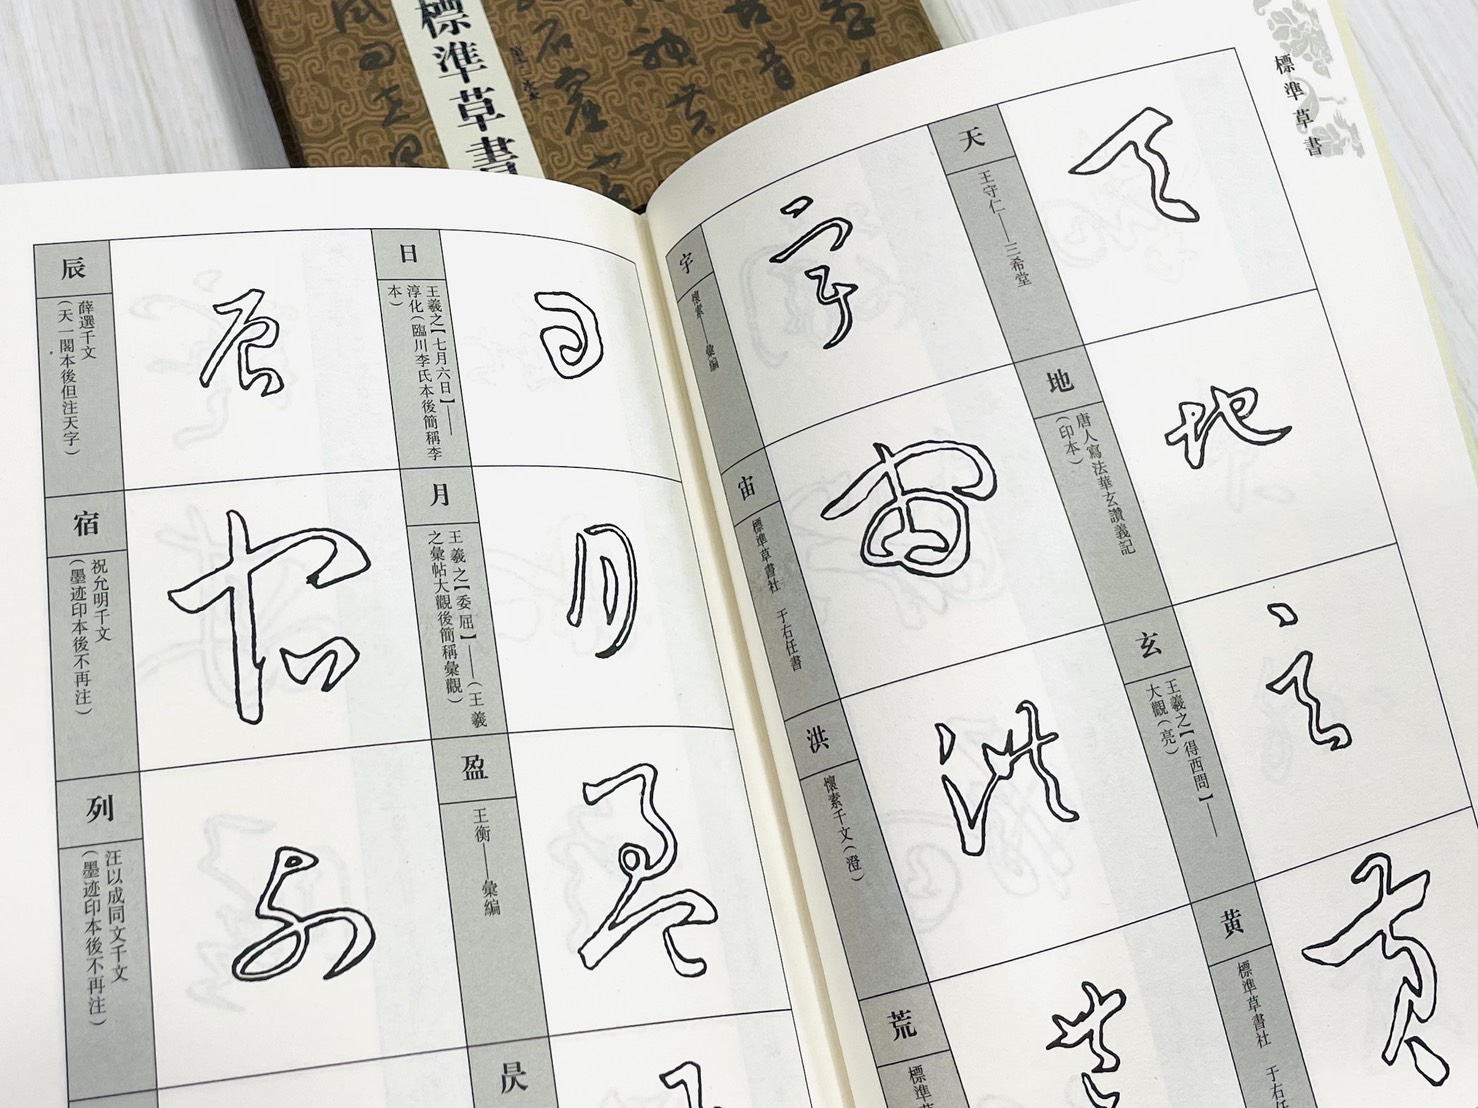 標準草書
標準草書
天
王守仁——三希堂
地
唐人寫法華玄讚義記
（印本）
玄
王羲之【得西問】——
大觀（亮）
黄
標準草書社 于右任書
宇
懷素——彙編
宙
標準草書社 于右任書
洪
懷素千文（澄）
荒
標準草
日
王羲之【七月六日】——
淳化（臨川李氏本後簡稱李
本）
月
王羲之【委屈】——（王羲
之彙帖大觀後簡稱彙觀）
盈
王衡——彙編
昃
辰
薛選千文
（天一閣本後但注天字）
宿
祝允明千文
（墨迹印本後不再注）
列
汪以成同文千文
（墨迹印本後不再注）